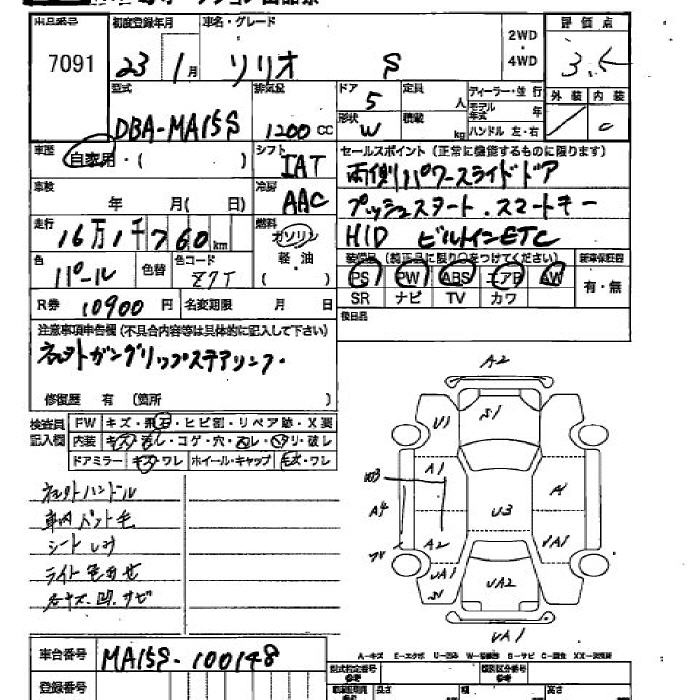 出品番号 初度登録年月 車名・グレード 2WD ・ 4WD 評価点
7091 23 1月 ソリオ S 3.5
型式 排気量 ドア 定員 ディーラー・並行 外装 内装
DBA-MA15S 1200 CC 5 人 モデル年式 年 C
形状 W 積載 kg ハンドル 左・右
車歴 自家用・( ) シフト IAT セールスポイント (正常に機能するものに限ります)
車検 年 月( 日) 冷房 AAC 両側パワースライドドア
プッシュスタート.スマートキー
走行 16万1千760km 燃料 ガソリン 軽・油 ( ) HID ビルトインETC
色 パール 色替 色コード Z7T 装備品(純正品に限り○をつけてください) 新車保証書
PS PW ABS エアB AW 有・無
SR ナビ TV カワ
R券 10900円 名変期限 月 日 後日品
注意事項申告欄(不具合内容等は具体的に記入して下さい)
ガングリップステアリング.
修復歴 有 (箇所 )
検査員記入欄 FW キズ・飛石・ヒビ割・リペア跡・X要
内装 キズ・汚レ・コゲ・穴・スレ・ヘリ・破レ
ドアミラー キズ・ワレ ホイール・キャップ キズ・ワレ
ハンドル
車内 ペット毛
シート
ライト色あせ
各キズ.凹.サビ
A2
S1
U1
A1
W3
A4
U3
A
A2
UA1
UA1
UA2
S
UA1
A-キズ E-エクボ U-凹み W-補修跡 S-サビ C-腐食 XX-交換済
車台番号 MA15S-100148
型式指定番号 参考 類別区分番号 参考
登録番号 長さ 幅 高さ